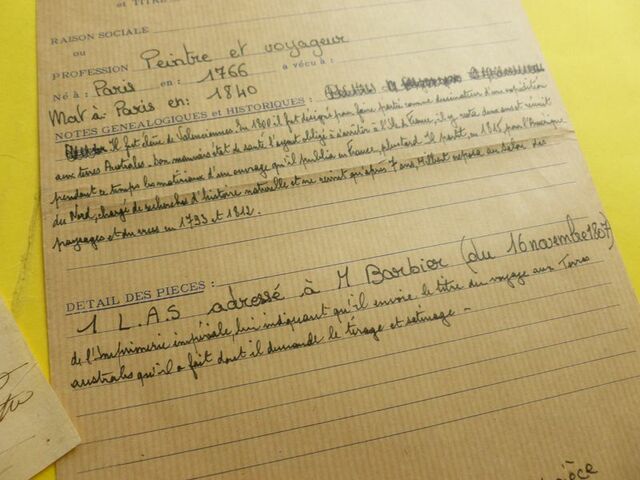 et TITRE
RAISON SOCIALE
ou
PROFESSION Peintre et voyageur
Né à : Paris en : 1766 a vécu à :
Mort à Paris en : 1840
NOTES GENEALOGIQUES et HISTORIQUES :
Il fut élève de Valenciennes. En 1800 il fut désigné pour faire partie comme dessinateur d'une expédition
aux terres Australes - son mauvais état de santé l'ayant obligé à s'arrêter à l'Ile de France, il y resta deux ans et réunit
pendant ce temps les matériaux d'un ouvrage qu'il publia en France plus tard. Il partit en 1815 pour l'Amérique
du Nord, chargé de recherches d'histoire naturelle et ne revint qu'après 7 ans, Milbert exposa au Salon des
paysages et du en 1793 et 1812.
DETAIL DES PIECES :
1 L.A.S adressé à M Barbier (du 16 novembre 1807)
de l'Imprimerie impériale, lui indiquant qu'il envoie le titre du voyage aux Terres
australes qu'il a fait dont il demande le tirage et satinage -
pièce